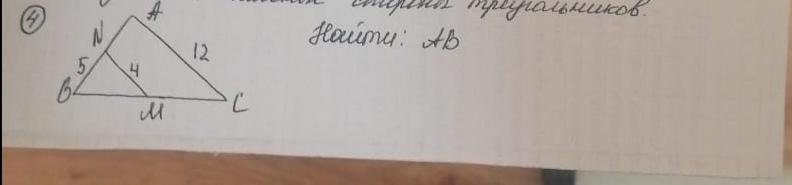 стороны треугольников.
4
Найти: AB
A
N
12
5
4
B
M
C